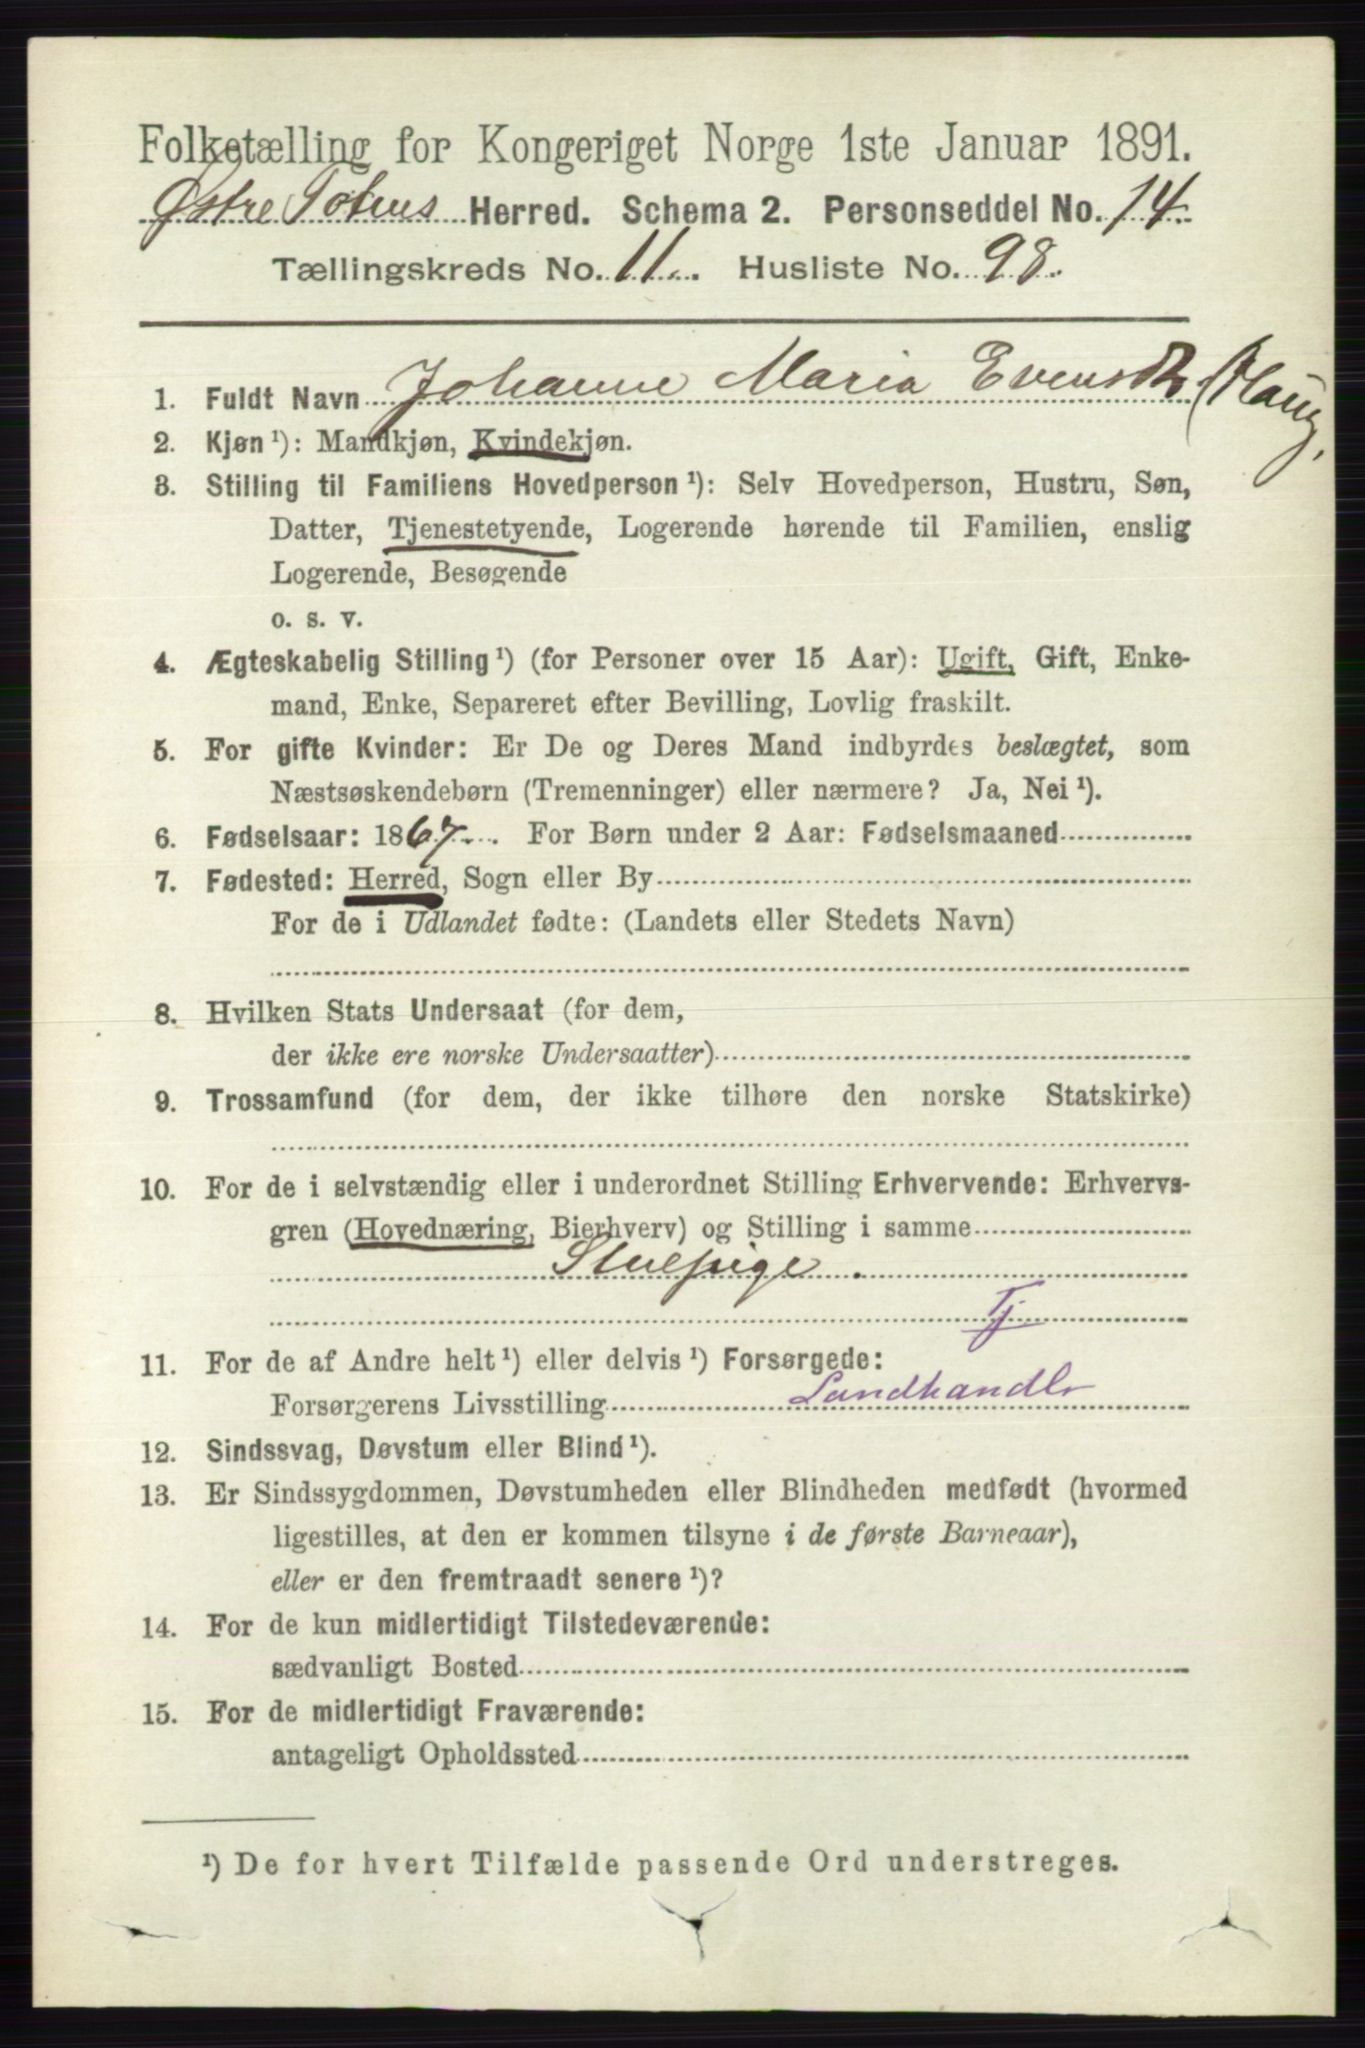 Folketælling for Kongeriget Norge 1ste Januar 1891.
Østre Totens Herred. Schema 2. Personseddel No. 14.
Tællingskreds No. 11. Husliste No. 98.
1. Fuldt Navn Johanne Maria Evensdtr (Haug,
2. Kjøn ¹): Mandkjøn, Kvindekjøn.
3. Stilling til Familiens Hovedperson ¹): Selv Hovedperson, Hustru, Søn,
Datter, Tjenestetyende, Logerende hørende til Familien, enslig
Logerende, Besøgende
o. s. v.
4. Ægteskabelig Stilling ¹) (for Personer over 15 Aar): Ugift, Gift, Enke-
mand, Enke, Separeret efter Bevilling, Lovlig fraskilt.
5. For gifte Kvinder: Er De og Deres Mand indbyrdes beslægtet, som
Næstsøskendebørn (Tremenninger) eller nærmere? Ja, Nei ¹).
6. Fødselsaar: 1867. For Børn under 2 Aar: Fødselsmaaned
7. Fødested: Herred, Sogn eller By
For de i Udlandet fødte: (Landets eller Stedets Navn)
8. Hvilken Stats Undersaat (for dem,
der ikke ere norske Undersaatter)
9. Trossamfund (for dem, der ikke tilhøre den norske Statskirke)
10. For de i selvstændig eller i underordnet Stilling Erhvervende: Erhvervs-
gren (Hovednæring, Bierhverv) og Stilling i samme
Stuepige.
Tj
11. For de af Andre helt ¹) eller delvis ¹) Forsørgede:
Forsørgerens Livsstilling Landhandlr
12. Sindssvag, Døvstum eller Blind ¹).
13. Er Sindssygdommen, Døvstumheden eller Blindheden medfødt (hvormed
ligestilles, at den er kommen tilsyne i de første Barneaar),
eller er den fremtraadt senere ¹)?
14. For de kun midlertidigt Tilstedeværende:
sædvanligt Bosted
15. For de midlertidigt Fraværende:
antageligt Opholdssted
¹) De for hvert Tilfælde passende Ord understreges.